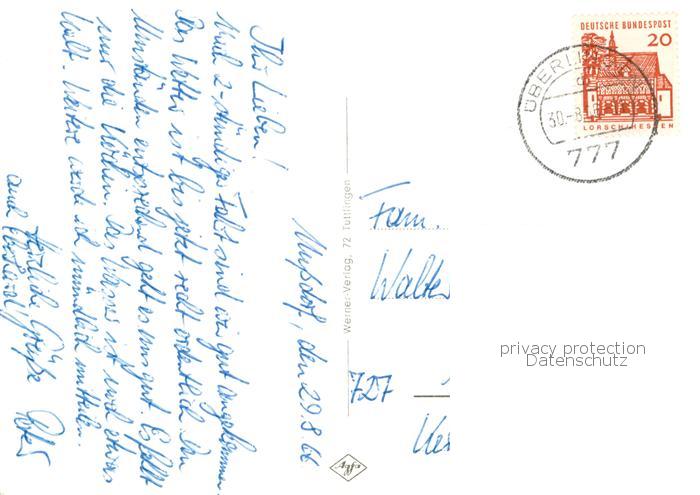 Nußdorf, den 29.8.66
Ihr Lieben!
Nach 2-stündiger Fahrt sind wir gut angekommen.
Das Wetter ist bis jetzt recht ordentlich. Den
Umständen entsprechend geht es uns gut. Es fehlt
nur die Wärme. Das Wasser ist noch etwas
kalt. Weitere werde ich mündlich mitteilen.
Herzliche Grüße
auch
Werner-Verlag, 72 Tuttlingen
Agfa
DEUTSCHE BUNDESPOST
20
LORSCH/HESSEN
ÜBERLINGEN
30.-8.
777
Fam.
Walter
727
privacy protection
Datenschutz